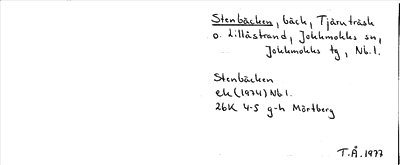 Stenbäcken, bäck, Tjåruträsk
o. Lillåstrand, Jokkmokks sn,
Jokkmokks tg, Nb.l.
Stenbäcken
ek (1974) Nb l.
26K 4-5 g-h Mörtberg
T.Å. 1977